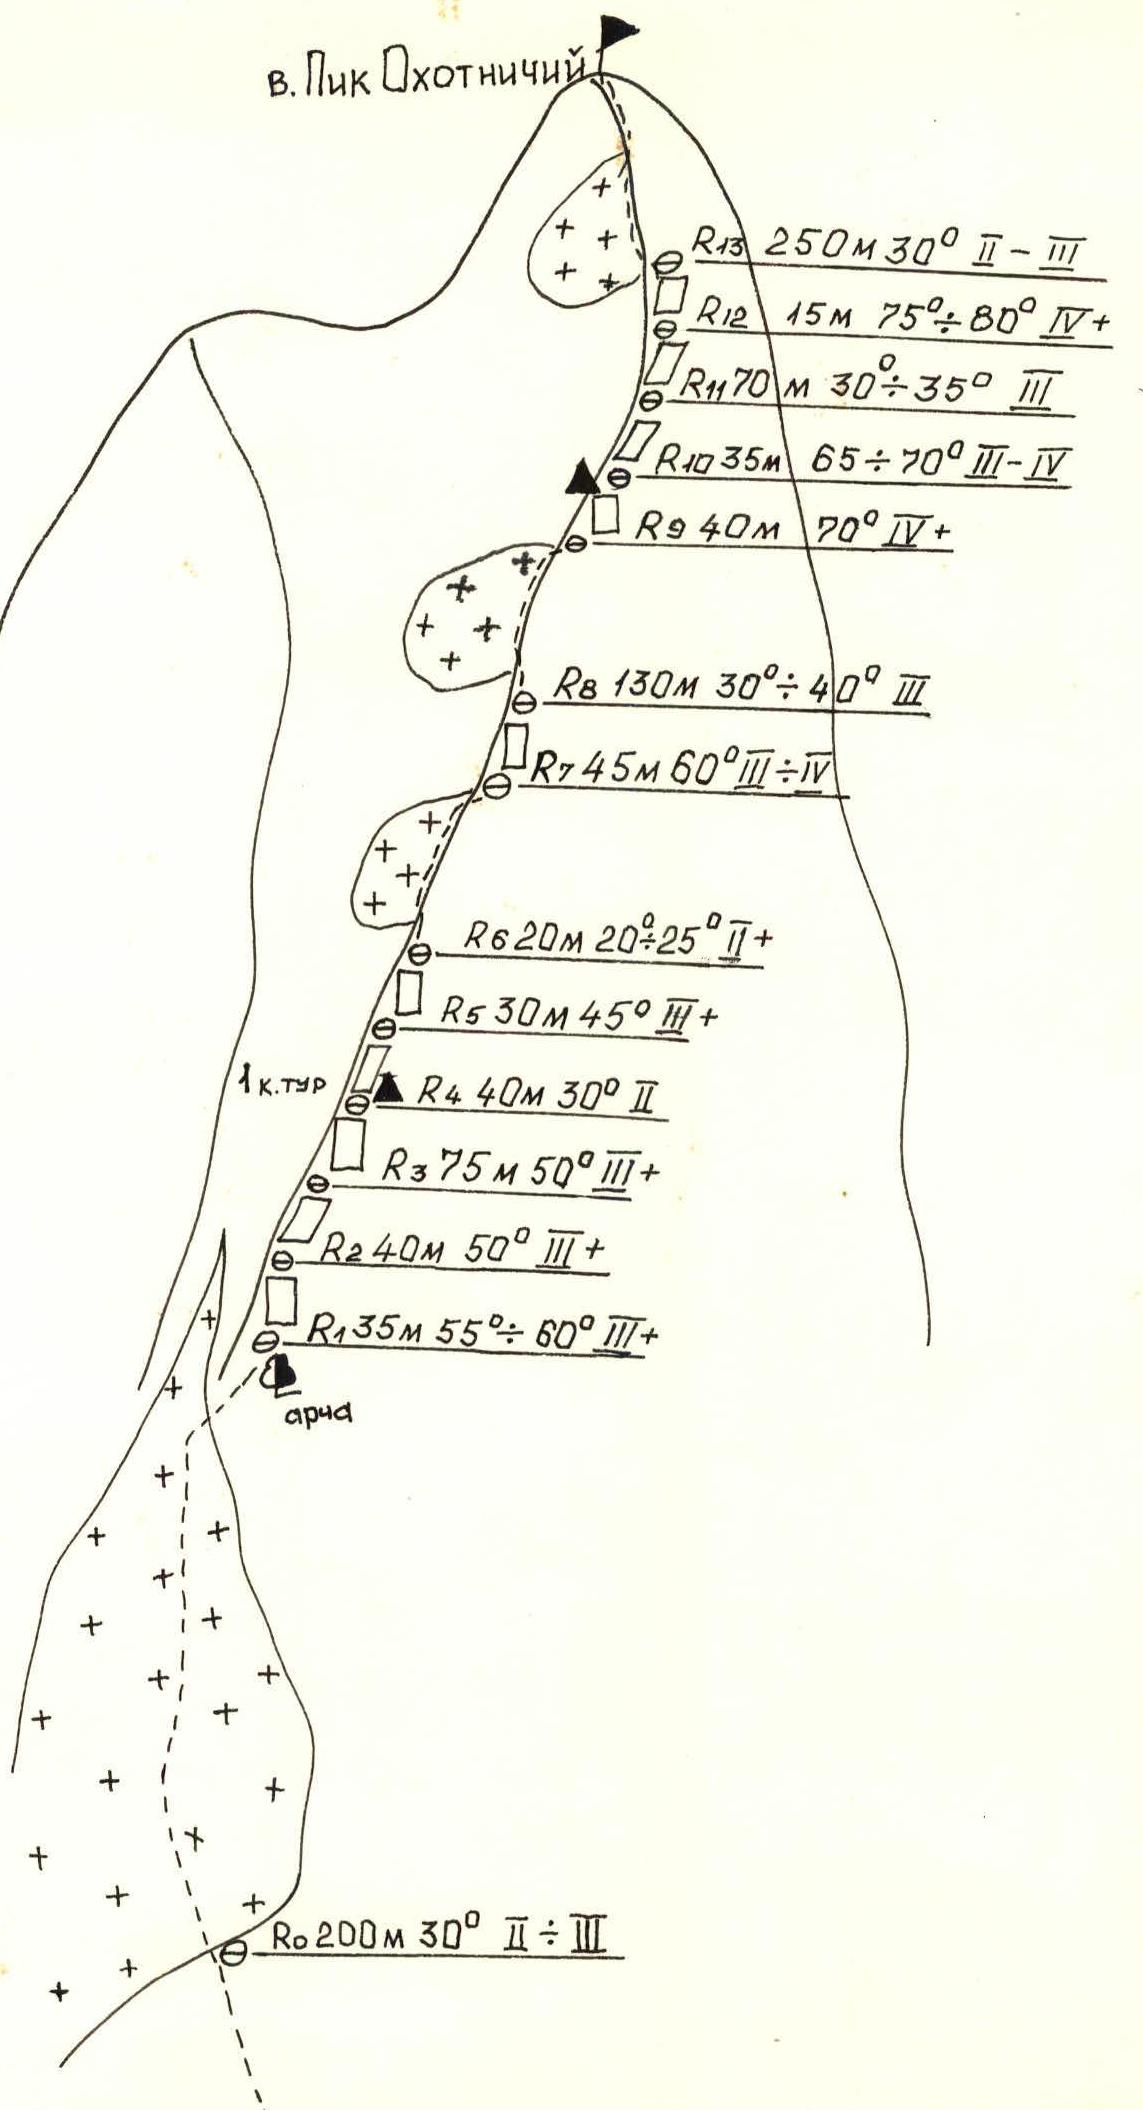 в. Пик Охотничий
R13 250м 30° II - III
R12 15м 75°÷80° IV+
R11 70 м 30°÷35° III
R10 35м 65÷70° III-IV
R9 40м 70° IV+
R8 130м 30°÷40° III
R7 45м 60° III÷IV
R6 20м 20°÷25° II+
R5 30м 45° III+
1 к.тур
R4 40м 30° II
R3 75м 50° III+
R2 40м 50° III+
R1 35м 55°÷60° III+
арча
R0 200м 30° II÷III